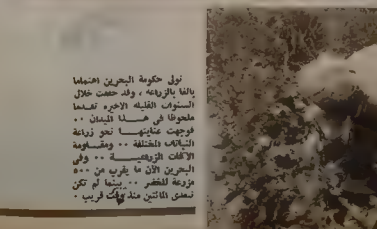 تولى حكومة البحرين اهتماما
بالغا بالزراعة ، وقد حققت خلال
السنوات القليله الاخيره تقدما
ملحوظا فى هــذا الميدان ..
فوجهت عنايتهــا نحو زراعة
النباتات المختلفة .. ومقــاومة
الآفات الزراعيــة .. وفى
البحرين الآن ما يقرب من ٥٠٠
مزرعة للخضر .. بينما لم تكن
تتعدى المائتين منذ وقت قريب .